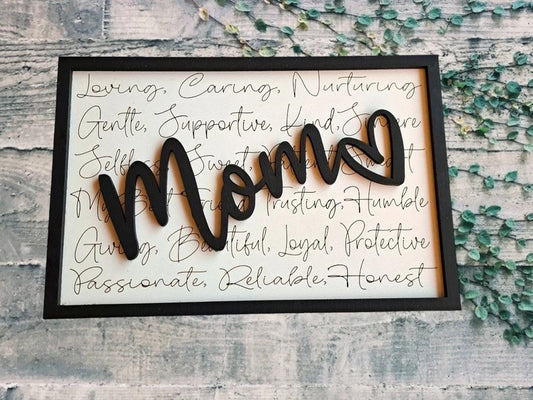 Loving, Caring, Nurturing
Gentle, Supportive, Kind, Sincere
Selfless, Sweet,
Mom
My Best Friend, Trusting, Humble
Giving, Beautiful, Loyal, Protective
Passionate, Reliable, Honest